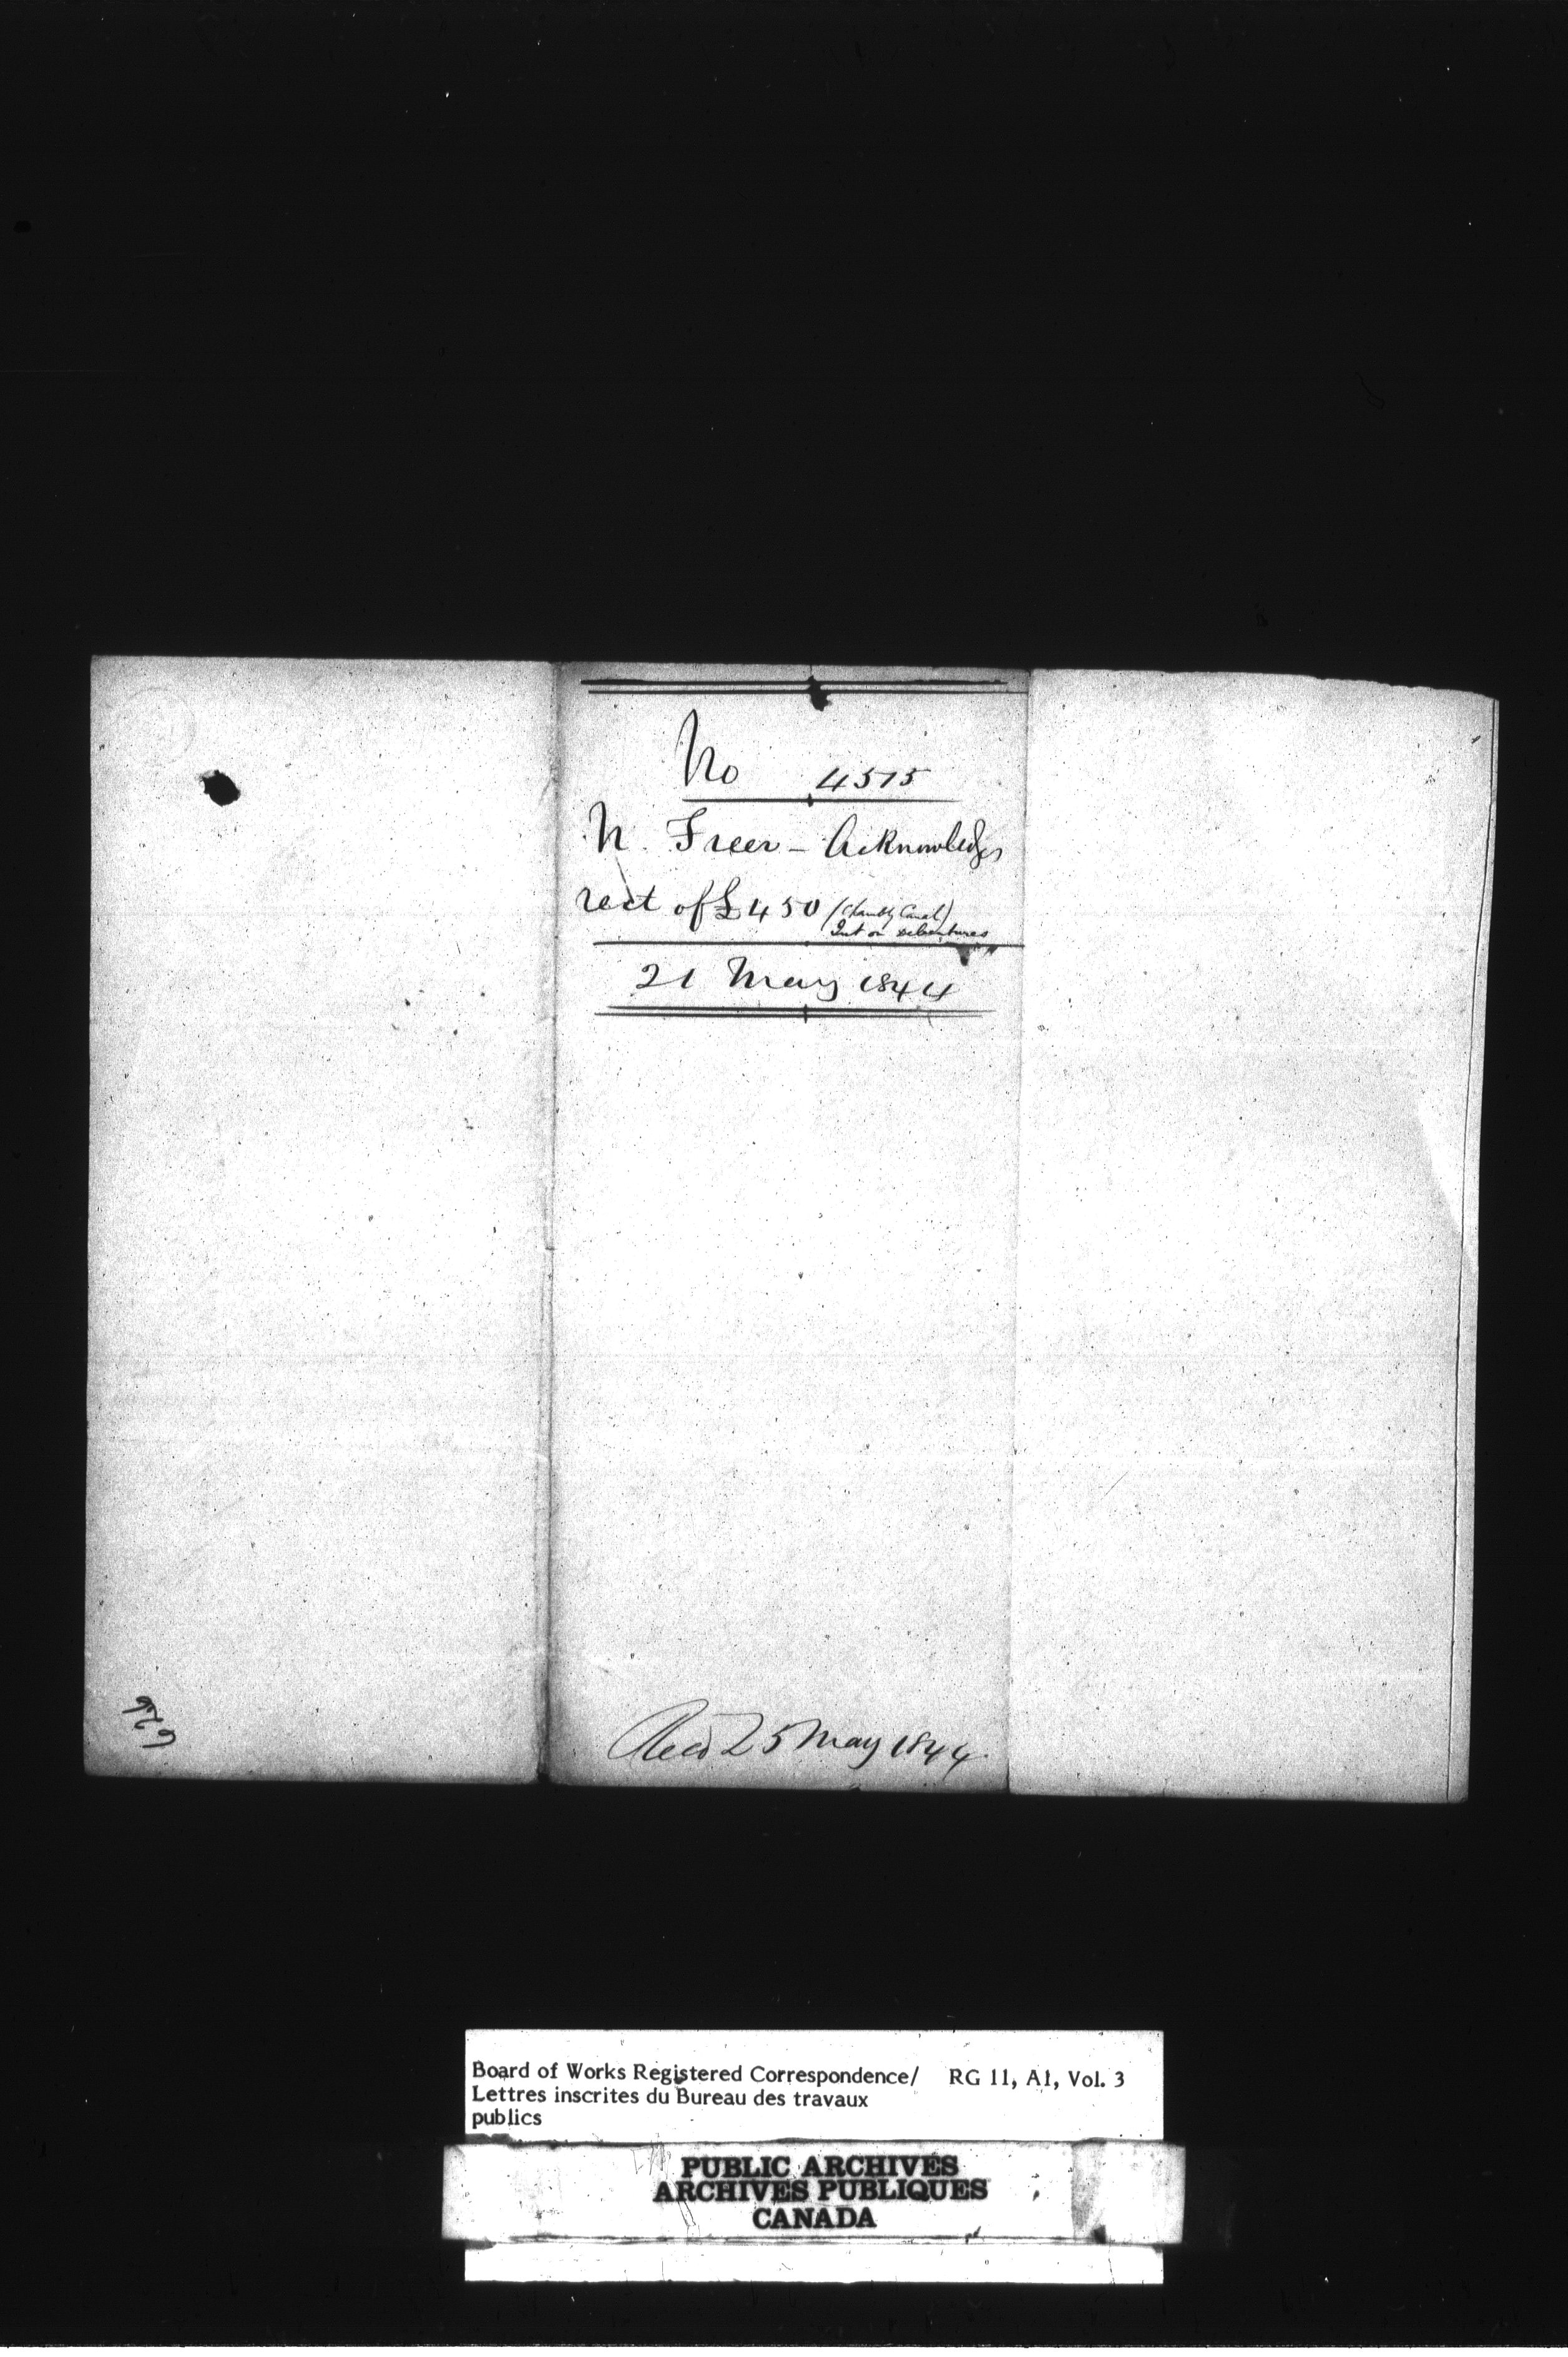 No 4515
N. Freer - Acknowledges
rect of £450 (Chambly Canal)
Int on debentures
21 May 1844
Recd 25 May 1844
Board of Works Registered Correspondence/ RG 11, A1, Vol. 3
Lettres inscrites du Bureau des travaux
publics
PUBLIC ARCHIVES
ARCHIVES PUBLIQUES
CANADA